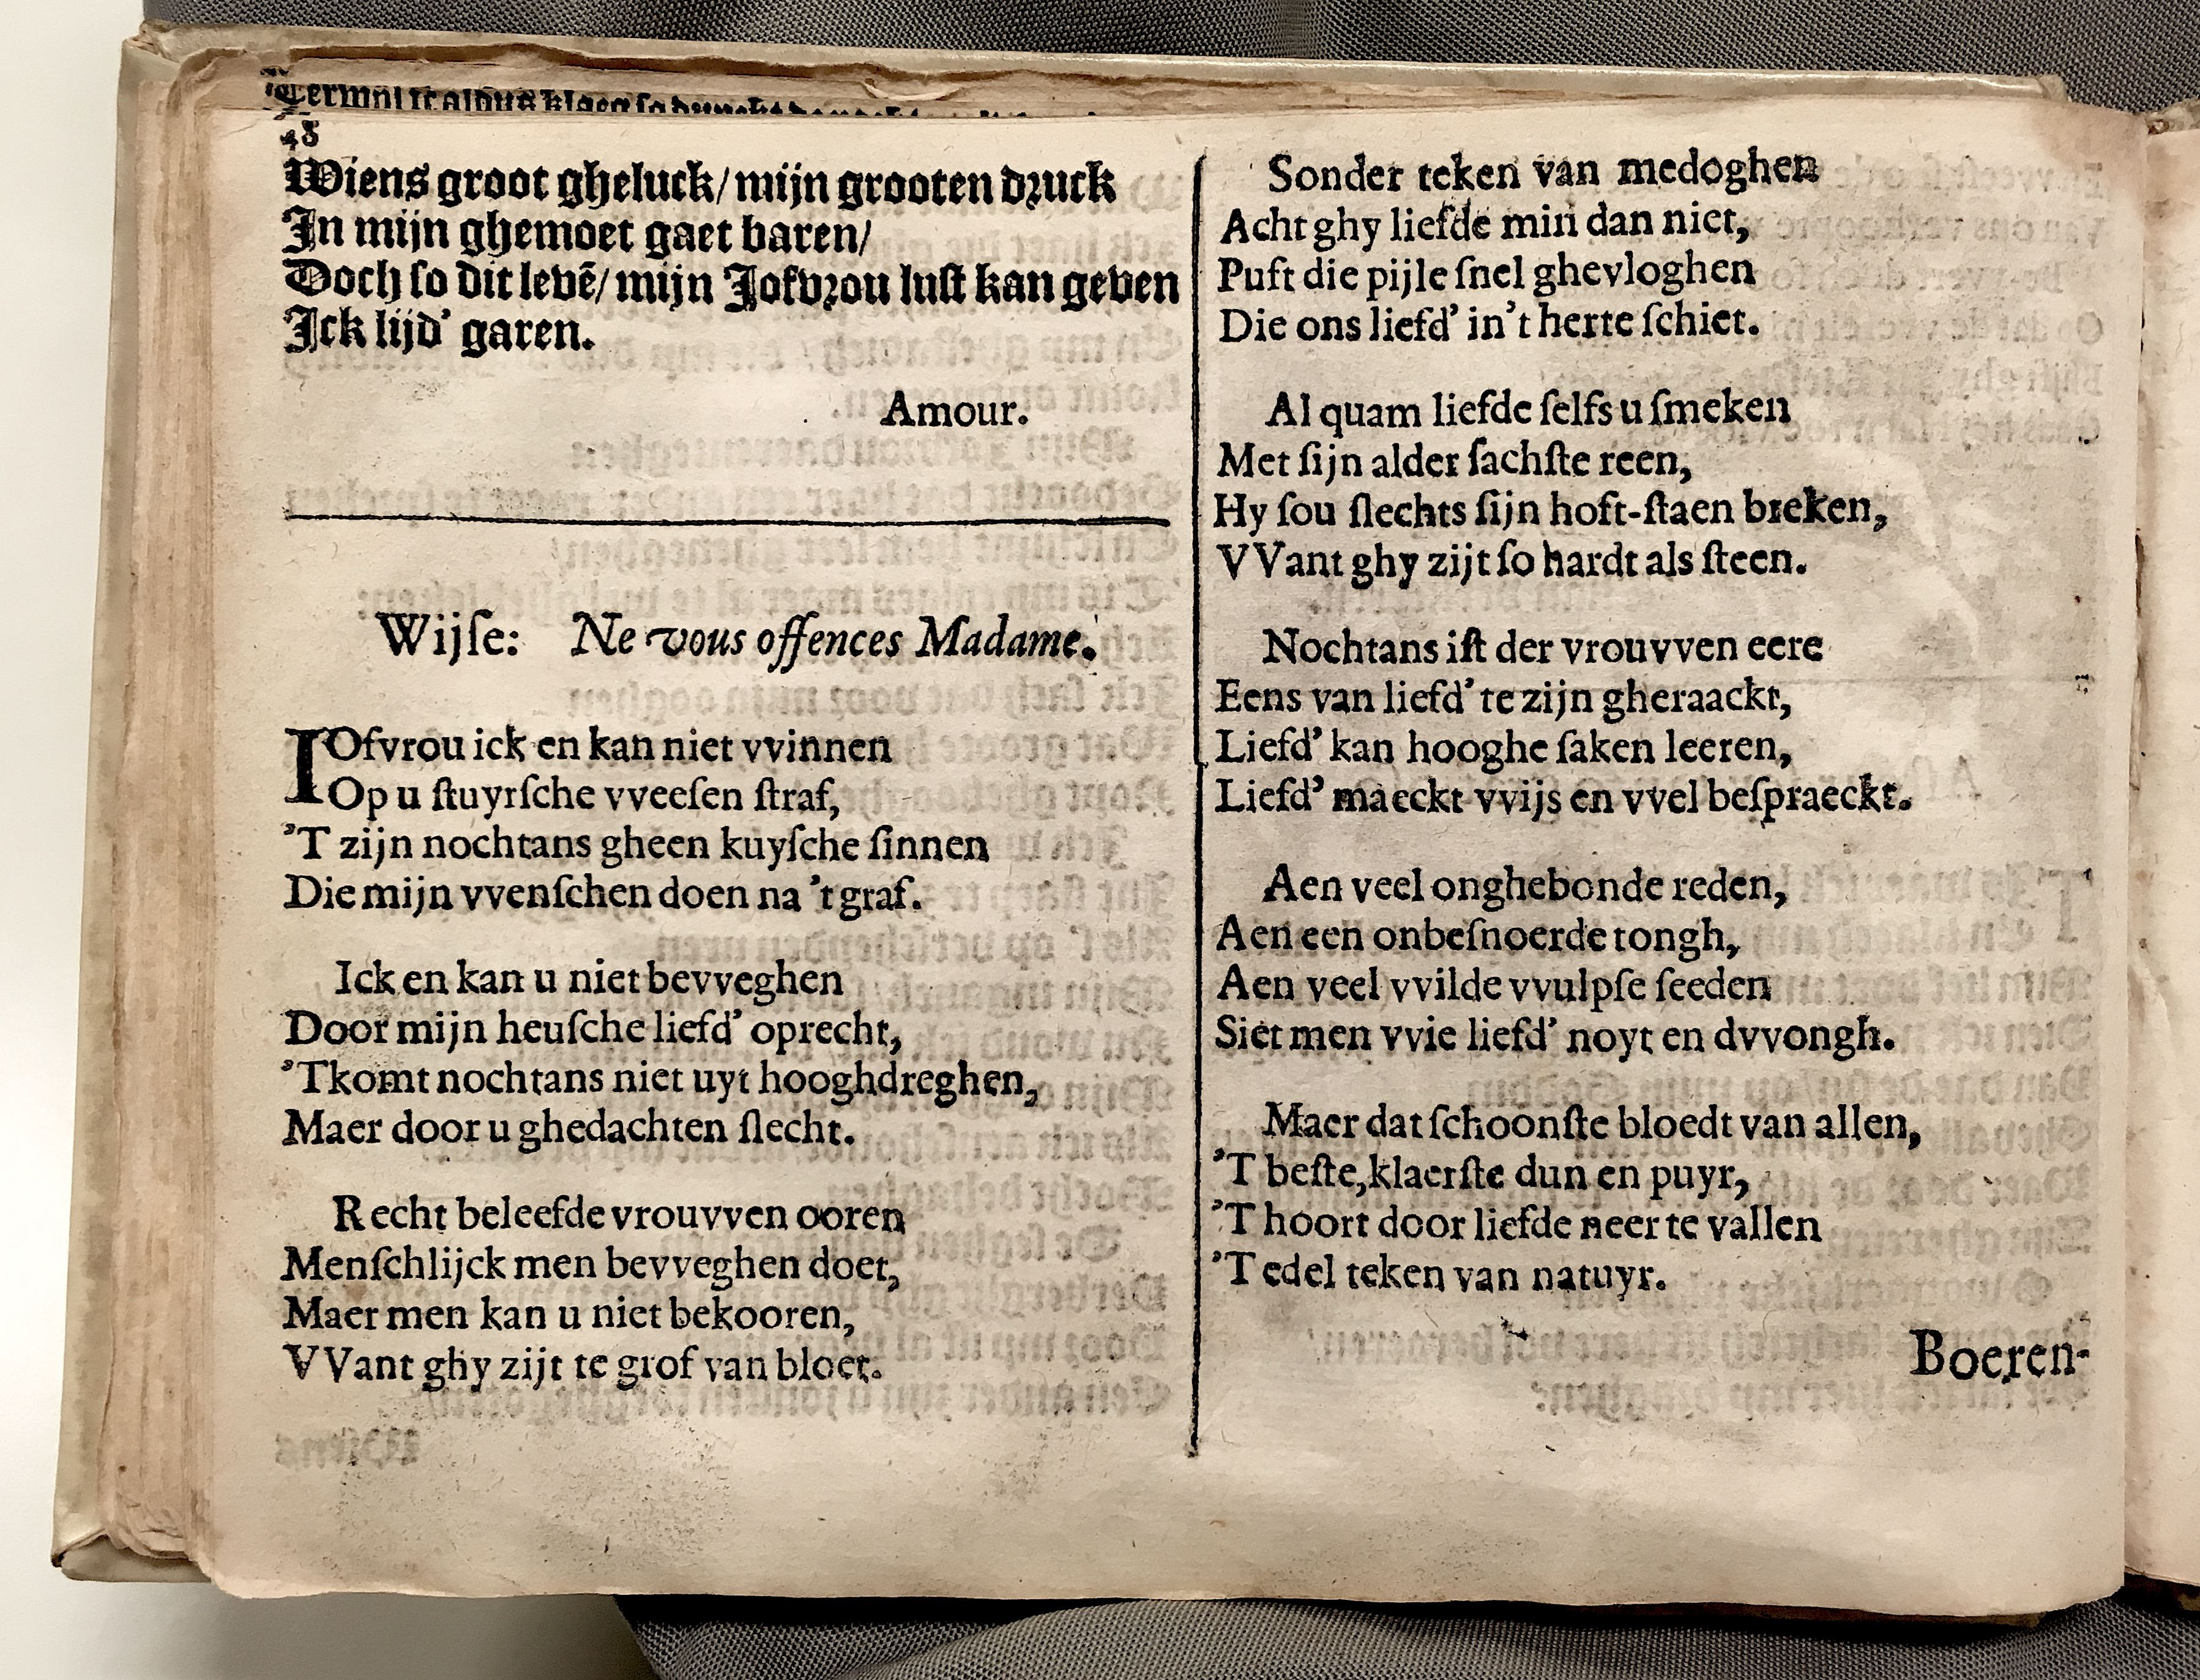 48
Wiens groot gheluck/ mijn grooten druck
In mijn ghemoet gaet baren/
Doch so dit levē/ mijn Jofvrou lust kan geven
Ick lijd' garen.
Amour.
Wijſe: Ne vous offences Madame.
IOfvrou ick en kan niet vvinnen
Op u ſtuyrſche vveeſen ſtraf,
'T zijn nochtans gheen kuyſche ſinnen
Die mijn vvenſchen doen na 't graf.
Ick en kan u niet bevveghen
Door mijn heuſche liefd' oprecht,
'Tkomt nochtans niet uyt hooghdreghen,
Maer door u ghedachten ſlecht.
Recht beleefde vrouvven ooren
Menſchlijck men bevveghen doet,
Maer men kan u niet bekooren,
VVant ghy zijt te grof van bloet.
Sonder teken van medoghen
Acht ghy liefde min dan niet,
Puft die pijle ſnel ghevloghen
Die ons liefd' in't herte ſchiet.
Al quam liefde ſelfs u ſmeken
Met ſijn alder ſachſte reen,
Hy ſou ſlechts ſijn hoft-ſtaen breken,
VVant ghy zijt ſo hardt als ſteen.
Nochtans iſt der vrouvven eere
Eens van liefd' te zijn gheraackt,
Liefd' kan hooghe ſaken leeren,
Liefd' maeckt vvijs en vvel beſpraeckt.
Aen veel onghebonde reden,
Aen een onbeſnoerde tongh,
Aen veel vvilde vvulpſe ſeeden
Siet men vvie liefd' noyt en dvvongh.
Maer dat ſchoonſte bloedt van allen,
'T beſte, klaerſte dun en puyr,
'T hoort door liefde neer te vallen
'T edel teken van natuyr.
Boeren-